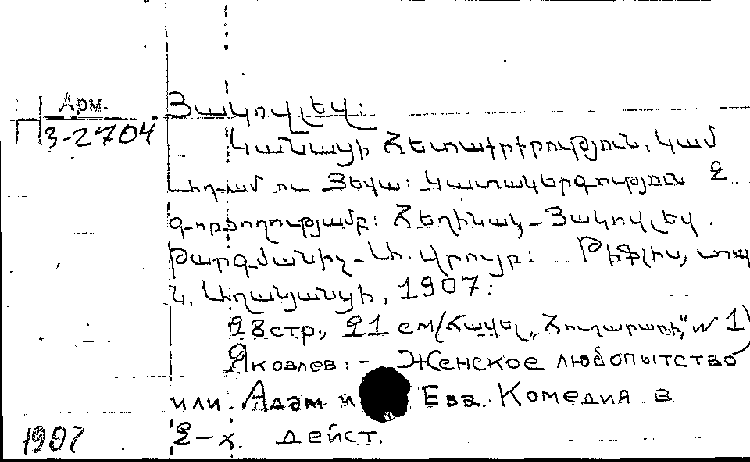 Арм.
П 3-2704
Յակովլեվ:
Կանացի հետաքրքրություն, կամ
Ադամ ու Եեվա: Կատակերգություն 2
գործողությամբ: Հեղինակ - Յակովլեվ.
Թարգմանիչ - Ա. Վրույր: Թիֆլիս, տպ
Ն. Աղանյանցի, 1907:
28 стр., 21 см (Հավել. „ ",N 1)
Яковлев: - Женское любопытство
или Адам и Ева. Комедия в
2-х дейст.
1907